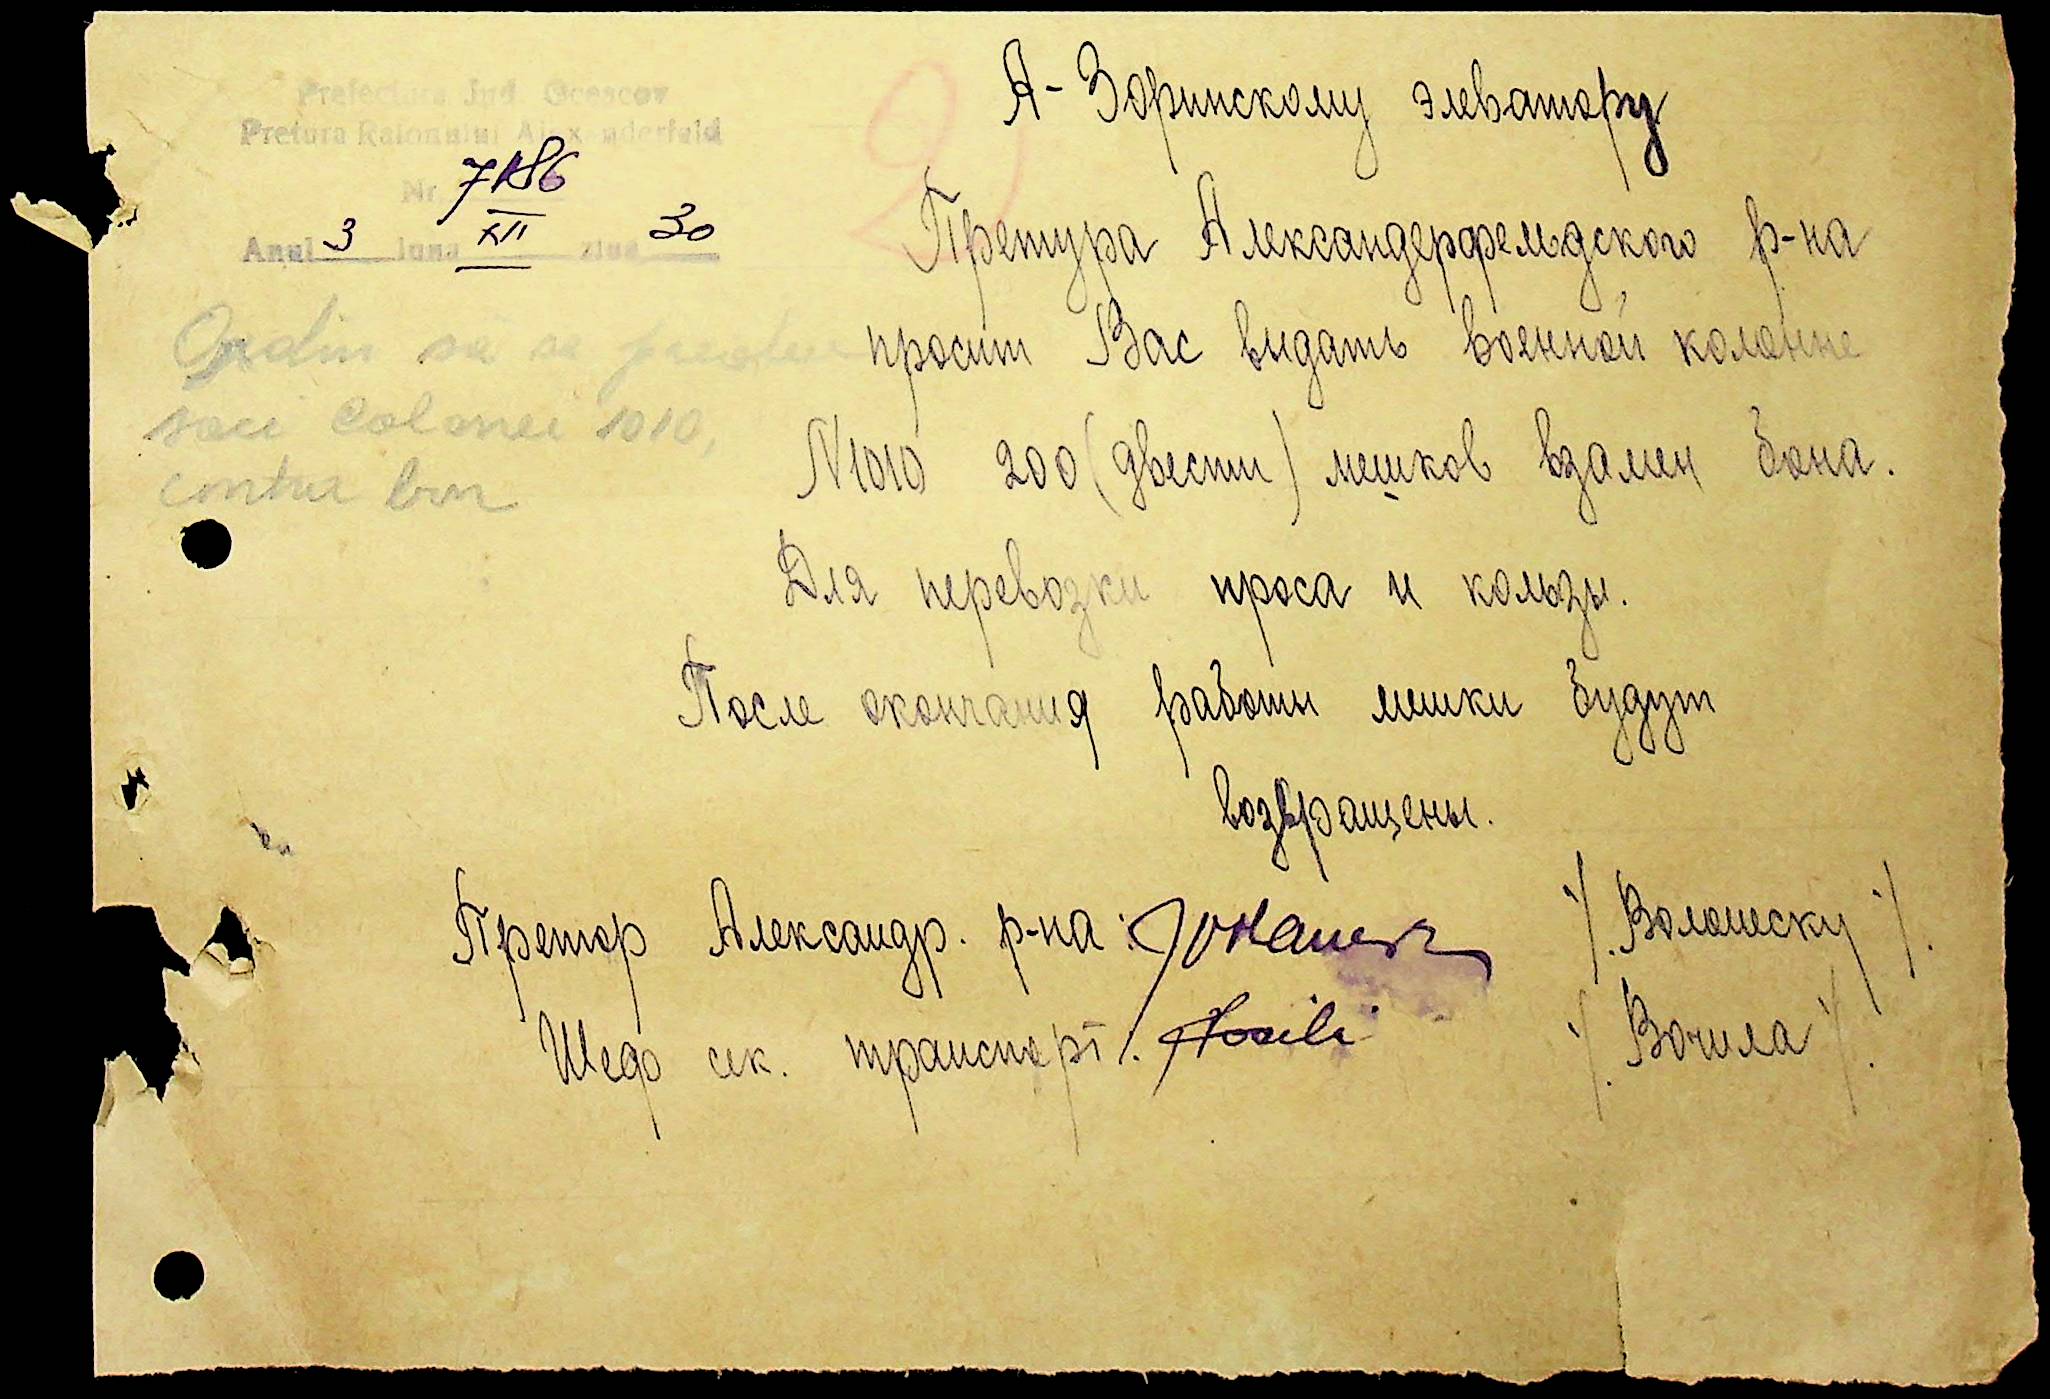 Prefectura Jud. Oceacov
Pretura Raionului Alexanderfeld
Nr. 7186
Anul 3 luna XII ziua 30
2
Ordin să se predea
saci Colonei 1010,
contra bon
А-Зоринскому элеватору
Претура Александерфельдского р-на
просит Вас выдать военной колонне
N1010 200 (двести) мешков взамен бона.
Для перевозки проса и кользы.
После окончания работы мешки будут
возвращены.
Претор Александр. р-на: /. Волошеску /.
Шеф сек. транспорт: /. Вочила /.